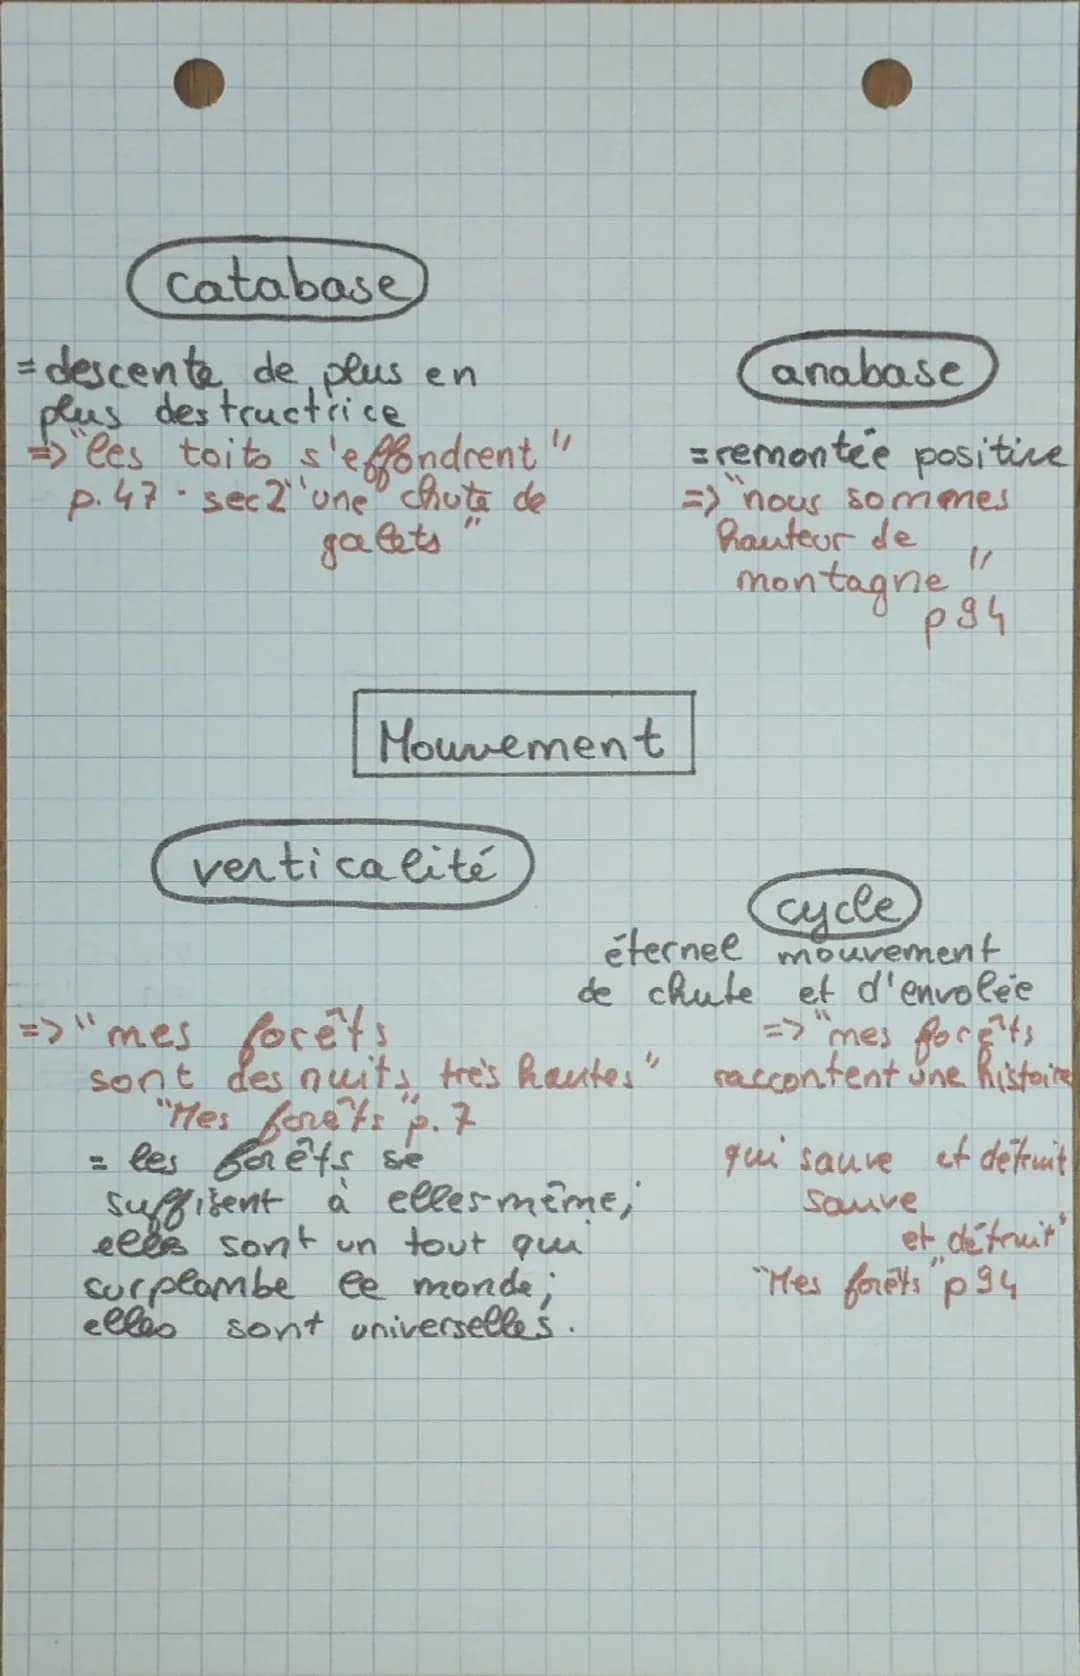 catabase
= descente de plus en
plus destructrice
=> "les toits s'effondrent"
p.47 · sec2 "une chute de
galets"
anabase
= remontée positive
=> "nous sommes
hauteur de
montagne"
p94
Mouvement
verticalité
=> "mes forêts
sont des nuits très hautes"
"Mes forêts" p.7
= les forêts se
suffisent à elles-même;
elles sont un tout qui
surplombe le monde;
elles sont universelles.
cycle
éternel mouvement
de chute et d'envolée
=> "mes forêts
raccontent une histoire
qui sauve et détruit
sauve
et détruit"
"Mes forêts" p94